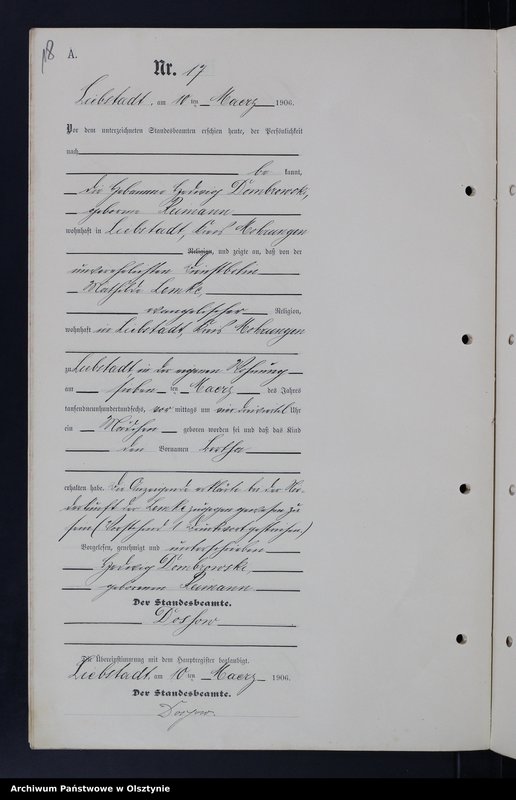 18
A.
Nr. 17
Liebstadt, am 10 ten Maerz 1906.
Vor dem unterzeichneten Standesbeamten erschien heute, der Persönlichkeit
nach
be kannt,
die Hebamme Hedwig Dombrowski,
geborene Reimann
wohnhaft in Liebstadt, Kreis Mohrungen
Religion, und zeigte an, daß von der
unverehelichten
Mathilde Lemke,
evangelischer Religion,
wohnhaft in Liebstadt, Kreis Mohrungen
zu Liebstadt, in der eigenen Wohnung
am sieben ten Maerz des Jahres
tausendneunhundertundsechs, vor mittags um Uhr
ein Mädchen geboren worden sei und daß das Kind
den Vornamen Bertha
erhalten habe. Die Anzeigende erklärte bei der Nie-
derkunft der Lemke zugegen gewesen zu
sein. (Vorstehend 1 Druckwort gestrichen.)
Vorgelesen, genehmigt und unterschrieben
Hedwig Dombrowski,
geborene Reimann
Der Standesbeamte.
Dossow
Die Übereinstimmung mit dem Hauptregister beglaubigt.
Liebstadt, am 10 ten Maerz 1906.
Der Standesbeamte.
Dossow.
Archiwum Państwowe w Olsztynie